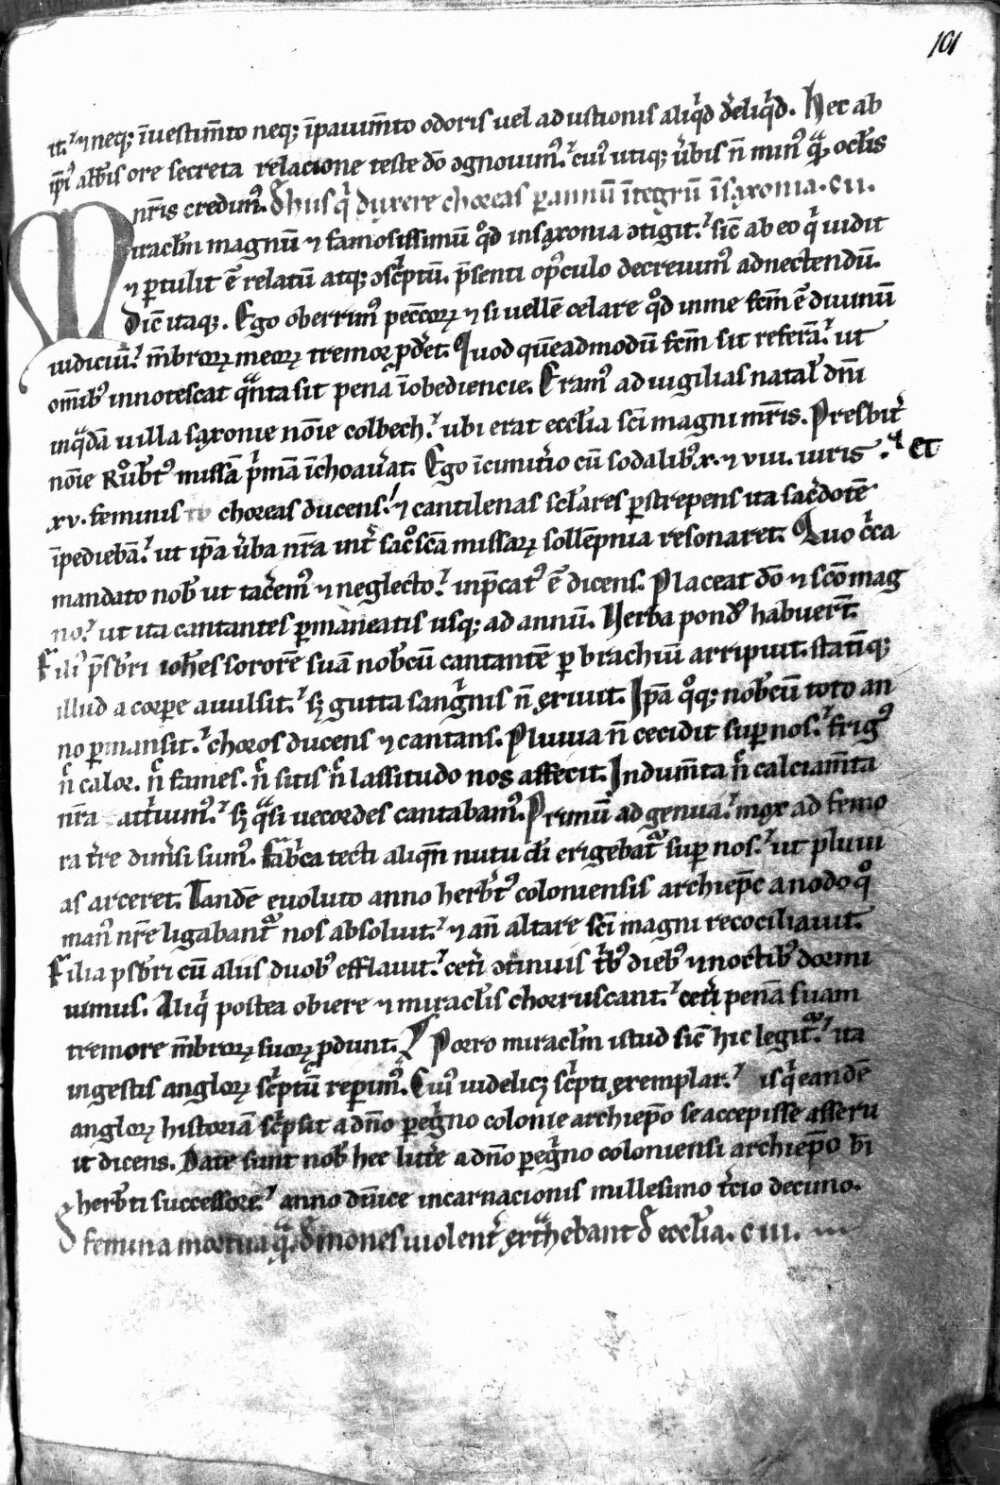 101
it.' ⁊ neq; īuestim̄to neq; īpauim̄to odoris uel adustionis aliq̇d d̓eliq̇d. Hec ab
ip̄i᷒ abb̄is ore secreta relacione teste dō ꝯgnouim᷒.' cui᷒ utiq; ūbis n̄ min᷒ qͣ̄ oc̄lis
nr̄is credim᷒. De hiis q̇ duxere choreas ꝑ annū īntegrū ī saxonia. cii.
Miracl̄m magnū ⁊ famosissimū qͦd in saxonia ꝯtigit.' sic̄ ab eo q̇ uidit
⁊ ꝑtulit ē relatū atq; ꝯsċptū. p̄senti op̄culo decreuim᷒ adnectendū.
Dic̄ itaq;. Ego oberrim᷒ pecc̄oꝝ ⁊ si uellē celare qͦd in me fc̄m ē diuinū
iudiciū.' m̄broꝝ meoꝝ tremor ꝓdet. Quod quēadmodū fc̄m sit referā.' ut
om̄ib᷒ innotescat qͣnta sit pena īobediencie. Eram᷒ ad uigilias natal̄ dn̄i
in qͣdā uilla saxonie nōie colbech.' ubi erat eccl̄ia sc̄i magni mr̄is. Presbit̓
nōie Roͦbt᷒ missā p̓mā īchoau̓at. Ego ī cimit̓io cū sodalib᷒ x. ⁊ viii. uiris .' et
xv. feminis choreas ducens.' ⁊ cantilenas sclāres ꝑstrepens ita sac̓dotē
īpediebā.' ut ip̄a u̓ba nr̄a int̓ sac̊sc̄a missaꝝ sollēpnia resonaret. Quo c̓ca
mandato nob̄ ut tac̓em᷒ ⁊ neglecto.' inp̄cat᷒ ē dicens. Placeat dō ⁊ sc̄o mag
no.' ut ita cantantes ꝑmaneatis usq; ad annū. Uerba pond᷒ habuer̄t.
Fili᷒ p̄sb̄ri ioh̄es sororē suā nob̄cū cantantē ꝑ brachiū arripuit. statīq;
illud a corpe auulsit.' sꝫ gutta sang̓nis n̄ exiuit. Ip̄a qͦq; nob̄cū toto an
no ꝑmansit.' choros ducens ⁊ cantans. Pluuia n̄ cecidit suꝑ nos.' frig᷒
n̓ calor. n̓ fames. n̓ sitis n̓ lassitudo nos affecit. Indum̄ta n̓ calciam̄ta
nr̄a att̓uim᷒.' sꝫ qͣsi uecordes cantabam᷒. Primū ad genua.' mox ad femo
ra t̓re dim̓si sum᷒. fab̓ca tecti aliqn̄ nutu di̅ erigebatᷣ suꝑ nos.' ut pluui
as arceret. Tandē euoluto anno herb̄t᷒ coloniensis archiep̄c a nodo qͦ
man᷒ nr̄e ligabantᷣ nos absoluit.' ⁊ an̄ altare sc̄i magni reco̅ciliauit.
Filia p̄sb̄ri cū aliis duob᷒ efflauit.' cet̓i ꝯtinuis t̓b᷒ dieb᷒ ⁊ noctib᷒ dormi
uimus. Aliq̇ postea obiere ⁊ miracl̄is chorruscant.' cet̓i penā suam
tremore m̄broꝝ suoꝝ ꝓdunt. Porro miracl̄m istud sic̄ hic legitᷣ.' ita
in gestis angloꝝ sċptū reꝑim᷒. Cui᷒ uidelicꝫ sċpti exemplar.' is q̇ eandē
angloꝝ historiā sċpsit a dn̄o ꝑeg̓no colonie archiep̄o se accepisse asseru
it dicens. Date sunt nob̄ hec litt̓e a dn̄o ꝑeg̓no coloniensi archiep̄o b̄i
herb̄ti successore.' anno dn̄ice incarnacionis millesimo t̓cio decimo.
De femina mortua qͣ̄ demones uiolent̓ extͣhebant de eccl̄ia. ciii.